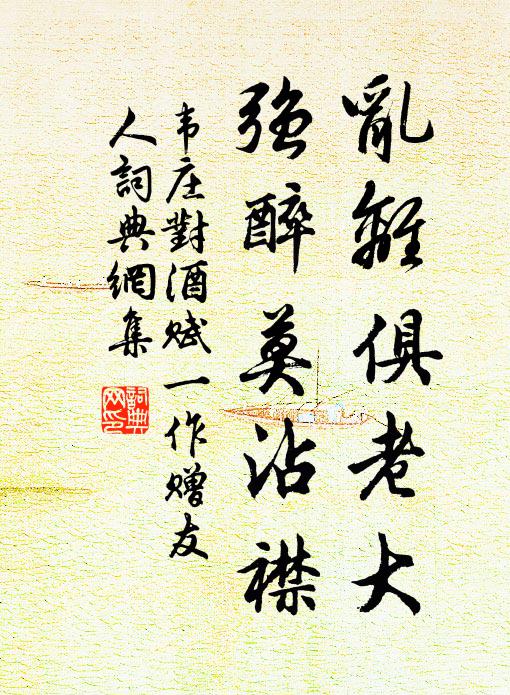 亂離俱老大
強醉莫沾襟
韦庄對酒赋一作赠友
人詞典網集
詞典
网印